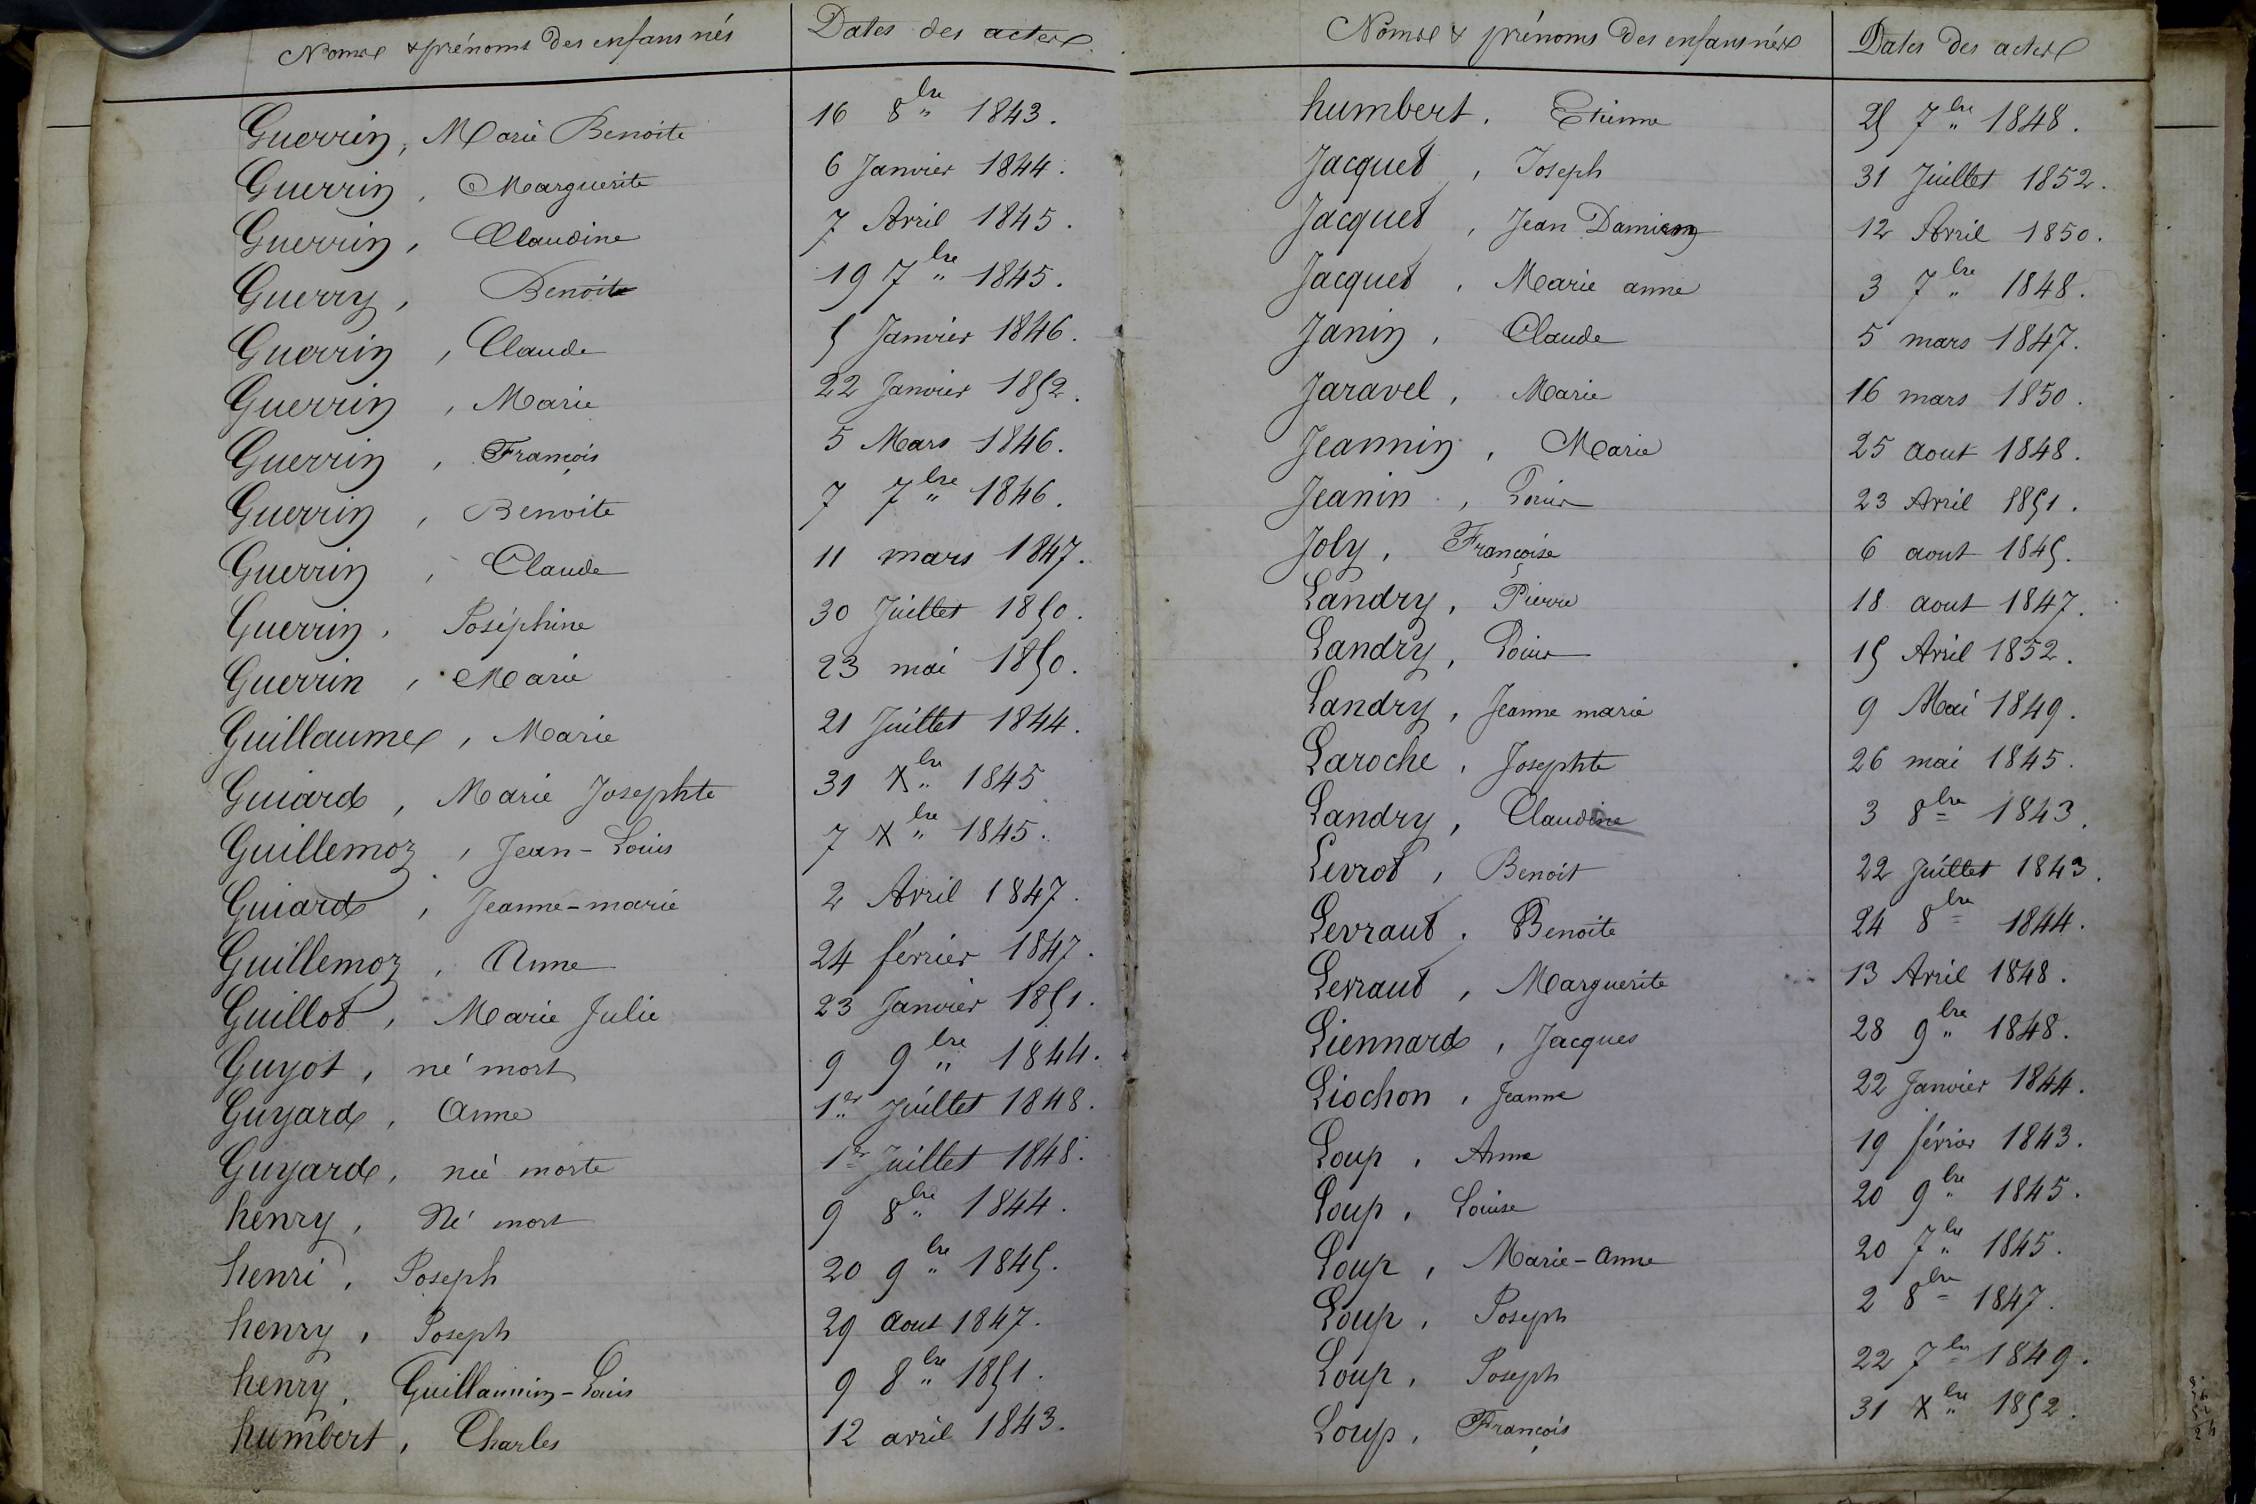 Noms & prénoms des enfans nés Dates des actes
Guerrin, Marie Benoite 16 8bre 1843.
Guerrin, Marguerite 6 Janvier 1844.
Guerrin, Claudine 7 Avril 1845.
Guerry, Benoit 19 7bre 1845.
Guerrin, Claude 5 Janvier 1846.
Guerrin, Marie 22 Janvier 1852.
Guerrin, François 5 Mars 1846.
Guerrin, Benoite 7 7bre 1846.
Guerrin, Claude 11 mars 1847.
Guerrin, Joséphine 30 Juillet 1850.
Guerrin, Marie 23 mai 1850.
Guillaume, Marie 21 Juillet 1844.
Guiard, Marie Josephte 31 Xbre 1845
Guillemoz, Jean-Louis 7 Xbre 1845.
Guiard, Jeanne-marie 2 Avril 1847.
Guillemoz, Anne 24 février 1847.
Guillot, Marie Julie 23 Janvier 1851.
Guyot, né mort 9 9bre 1844.
Guyard, Anne 1er Juillet 1848.
Guyard, née morte 1er Juillet 1848.
henry, Né mort 9 8bre 1844.
henri, Joseph 20 9bre 1845.
henry, Joseph 29 aout 1847.
henry, Guillaumin-Louis 9 8bre 1851.
humbert, Charles 12 avril 1843.
Noms & prénoms des enfans nés Dates des actes
humbert, Etienne 25 7bre 1848.
Jacquet, Joseph 31 Juillet 1852.
Jacquet, Jean Damien 12 Avril 1850.
Jacquet, Marie anne 3 7bre 1848.
Janin, Claude 5 mars 1847.
Jaravel, Marie 16 mars 1850.
Jeannin, Marie 25 aout 1848.
Jeanin, Louis 23 Avril 1851.
Joly, Françoise 6 aout 1845.
Landry, Pierre 18 aout 1847.
Landry, Louis 15 Avril 1852.
Landry, Jeanne marie 9 Mai 1849.
Laroche, Josephte 26 mai 1845.
Landry, Claudine 3 8bre 1843.
Levrot, Benoit 22 Juillet 1843.
Levraut, Benoite 24 8bre 1844.
Levraut, Marguerite 13 Avril 1848.
Liennard, Jacques 28 9bre 1848.
Liochon, Jeanne 22 Janvier 1844.
Loup, Anne 19 février 1843.
Loup, Louise 20 9bre 1845.
Loup, Marie-Anne 20 7bre 1845.
Loup, Joseph 2 8bre 1847.
Loup, Joseph 22 7bre 1849.
Loup, François 31 Xbre 1852.